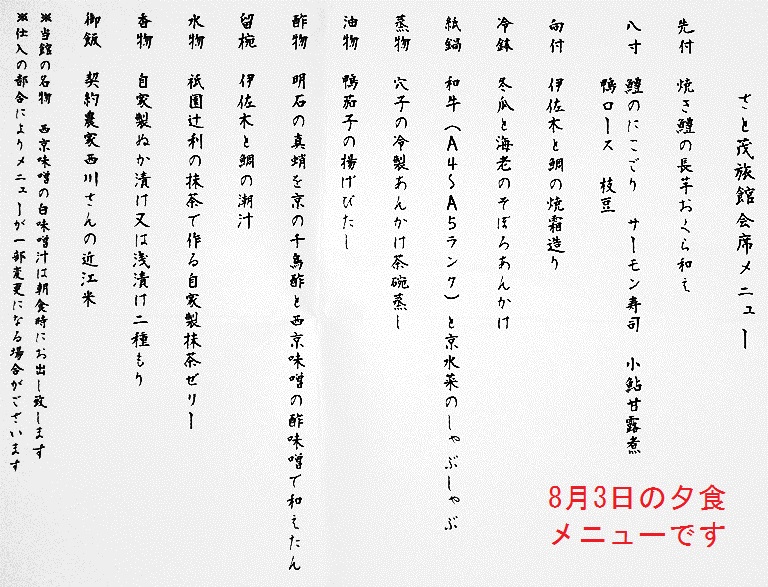 さと茂旅館会席メニュー
先付　焼き鱧の長芋おくら和え
八寸　鱧のにこごり　サーモン寿司　小鮎甘露煮
鴨ロース　枝豆
向付　伊佐木と鯛の焼霜造り
冷鉢　冬瓜と海老のそぼろあんかけ
紙鍋　和牛（A4〜A5ランク）と京水菜のしゃぶしゃぶ
蒸物　穴子の冷製あんかけ茶碗蒸し
油物　鴨茄子の揚げびたし
酢物　明石の真蛸を京の千鳥酢と西京味噌の酢味噌で和えたん
留椀　伊佐木と鯛の潮汁
水物　祇園辻利の抹茶で作る自家製抹茶ゼリー
香物　自家製ぬか漬け又は浅漬け二種もり
御飯　契約農家西川さんの近江米
※当館の名物　西京味噌の白味噌汁は朝食時にお出し致します
※仕入の都合によりメニューが一部変更になる場合がございます
8月3日の夕食
メニューです